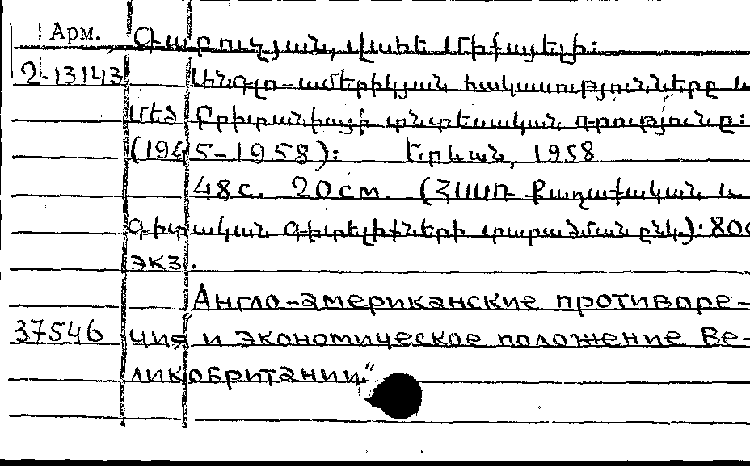 Арм. Գաբուչյան, Վահե Միքայելի:
2-13143 Անգլո-ամերիկյան հակասությունները և
Մեծ Բրիտանիայի տնտեսական դրությունը:
(1945-1958): Երևան, 1958
48с. 20см. (ՀՍՍՌ Քաղաքական և
գիտական գիտելիքների տարածման ընկ.): 800
экз.
Англо-американские противоре-
37546 чия и экономическое положение Ве-
ликобритании."